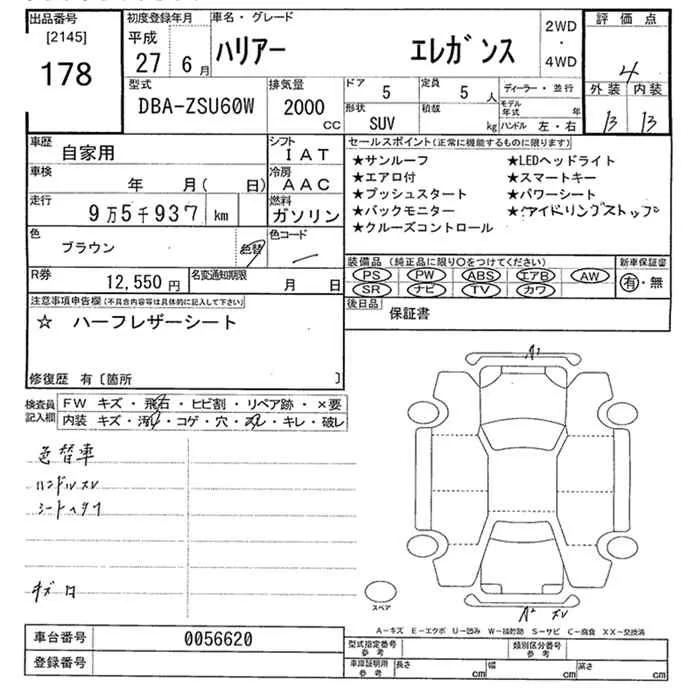 出品番号
[2145]
178
初度登録年月
平成
27 6月
車名・グレード
ハリアー エレガンス
2WD
・
4WD
評価点
4
外装 内装
B B
型式
DBA-ZSU60W
排気量
2000
CC
ドア
5
定員
5人
形状
SUV
積載
kg
ディーラー・並行
モデル年式 年
ハンドル 左・右
車歴
自家用
シフト
IAT
車検
年 月( 日)
冷房
AAC
走行
9万5千937 km
燃料
ガソリン
色
ブラウン
色替
色コード
R券
12,550円
名変通知期限
月 日
セールスポイント(正常に機能するものに限ります)
★サンルーフ ★LEDヘッドライト
★エアロ付 ★スマートキー
★プッシュスタート ★パワーシート
★バックモニター ★アイドリングストップ
★クルーズコントロール
装備品(純正品に限り○をつけてください)
PS PW ABS エアB AW
SR ナビ TV カワ
新車保証書
有・無
後日品
保証書
注意事項申告欄(不具合内容等は具体的に記入して下さい)
☆ ハーフレザーシート
修復歴 有〔箇所 〕
検査員記入欄
FW キズ・飛石・ヒビ割・リペア跡・×要
内装 キズ・汚れ・コゲ・穴・スレ・キレ・破レ
色替車
ハンドルスレ
シートヘタリ
キズ凹
A1
A2 スレ
スペア
A-キズ E-エクボ U-凹み W-補修跡 S-サビ C-腐食 XX-交換済
車台番号
0056620
登録番号
型式指定番号
参考
類別区分番号
参考
車庫証明用
参考
長さ cm
幅 cm
高さ cm